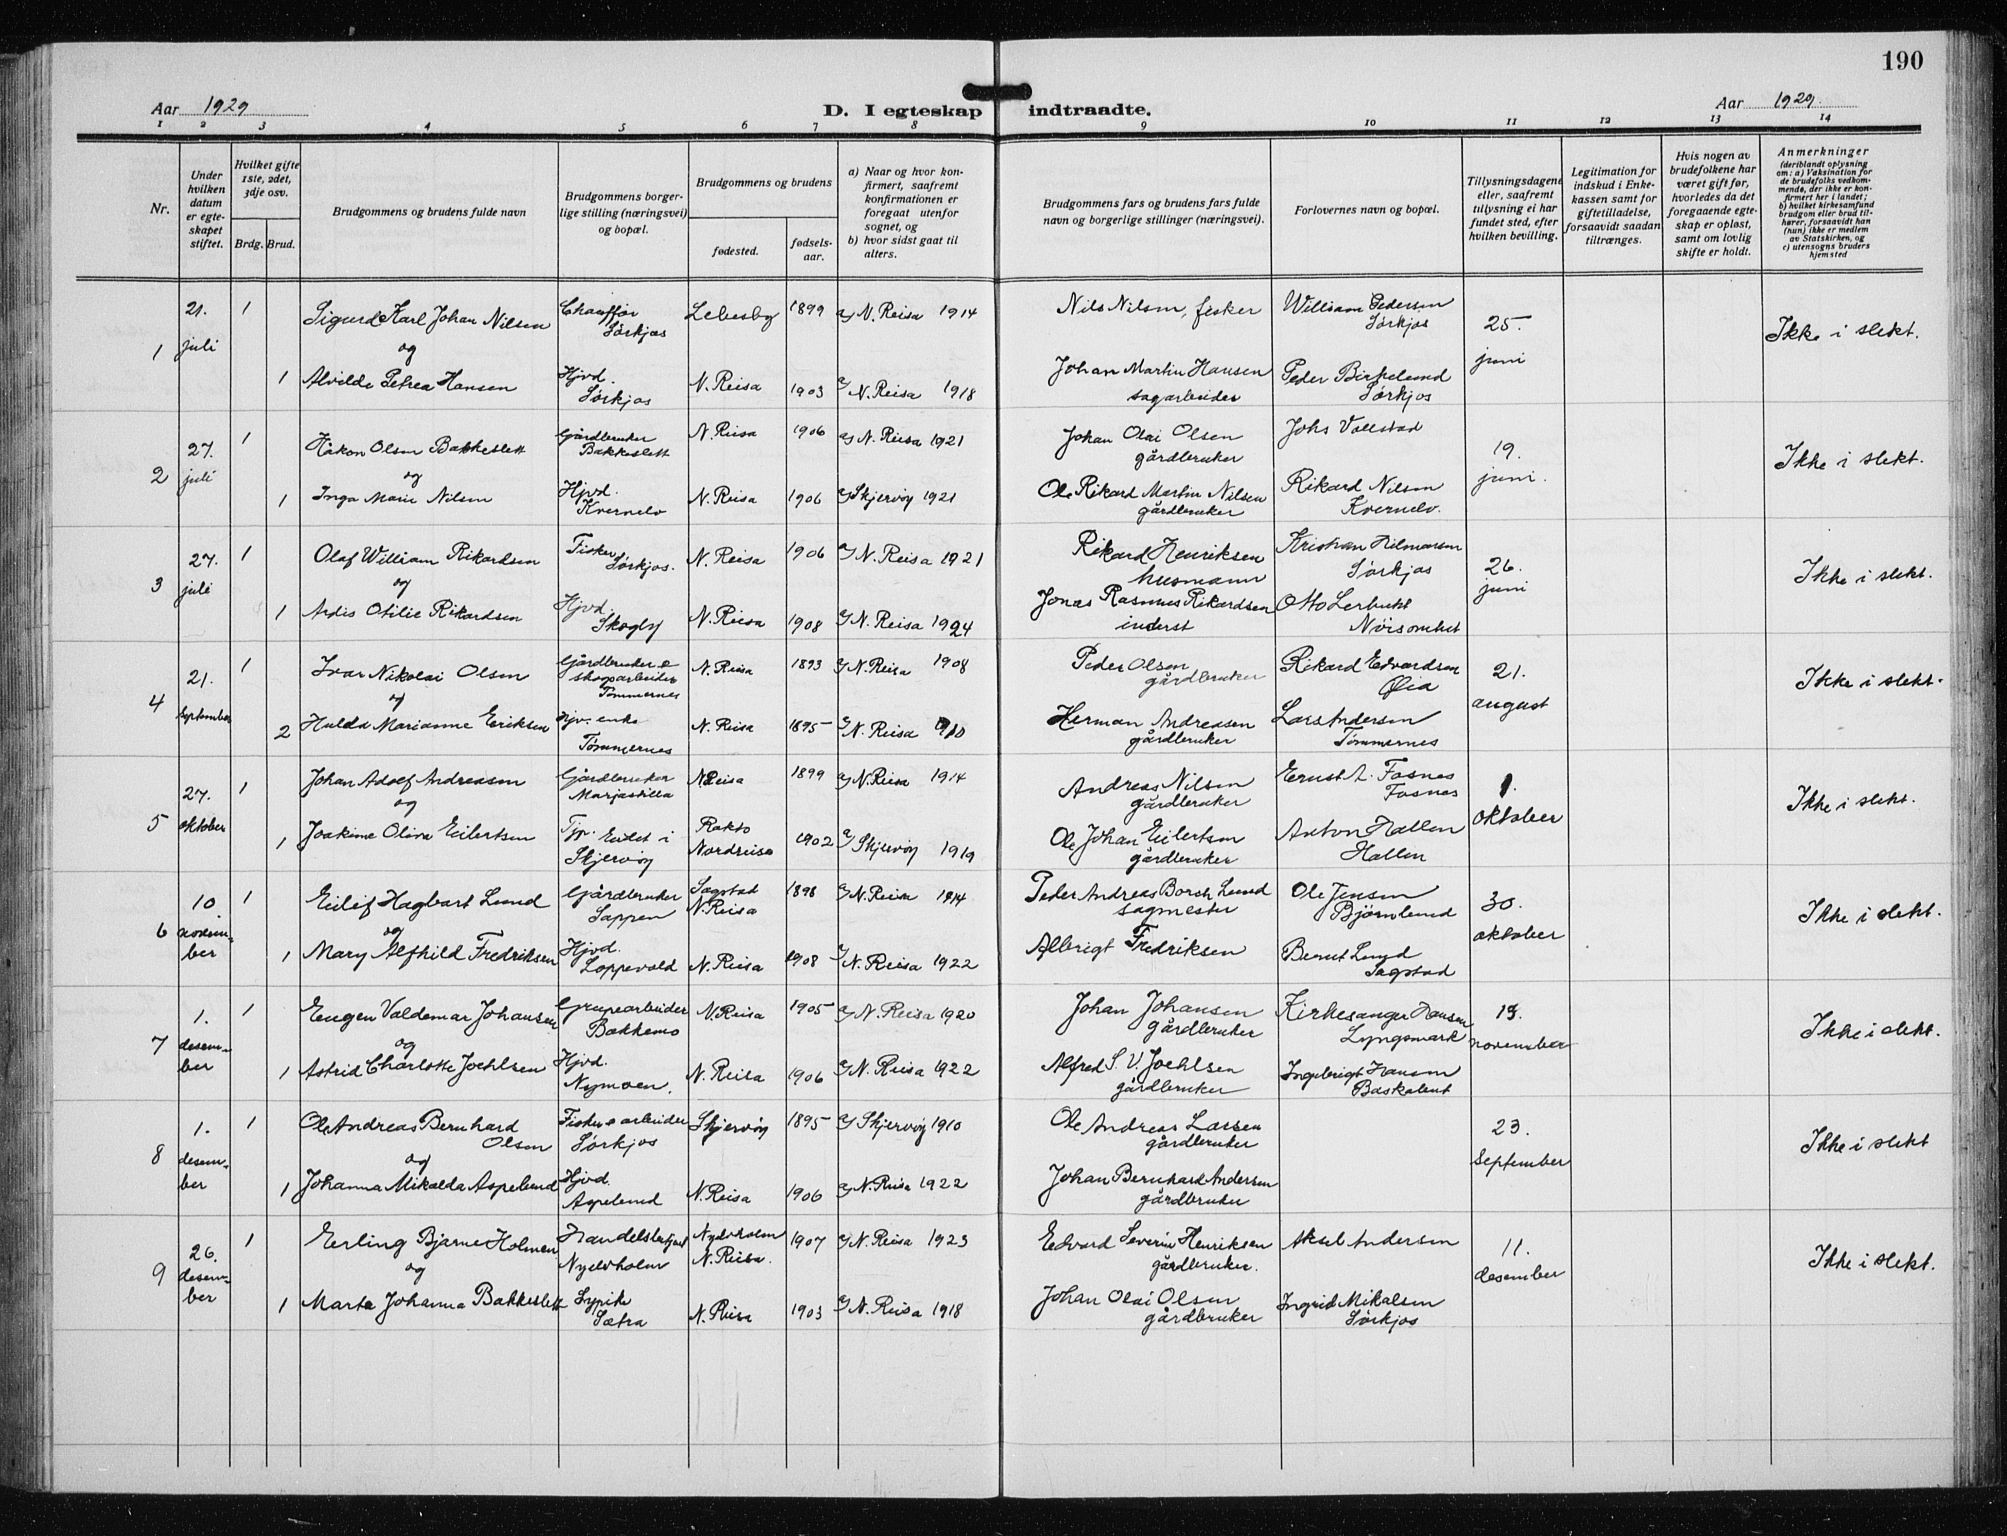 190
Aar 1929
D. I egteskap indtraadte.
Aar 1929.
1 2 3 4 5 6 7 8 9 10 11 12 13 14
Nr.
Under hvilken datum er egte-skapet stiftet.
Hvilket gifte 1ste, 2det, 3dje osv.
Brdg. Brud.
Brudgommens og brudens fulde navn
Brudgommens borger-lige stilling (næringsvei) og bopæl.
Brudgommens og brudens
fødested.
fødsels-aar.
a) Naar og hvor kon-firmert, saafremt konfirmationen er foregaat utenfor sognet, og
b) hvor sidst gaat til alters.
Brudgommens fars og brudens fars fulde navn og borgerlige stillinger (næringsvei).
Forlovernes navn og bopæl.
Tillysningsdagene eller, saafremt tillysning ei har fundet sted, efter hvilken bevilling.
Legitimation for indskud i Enke-kassen samt for giftetilladelse, forsaavidt saadan tiltrænges.
Hvis nogen av brudefolkene har været gift før, hvorledes da det foregaaende egte-skap er opløst, samt om lovlig skifte er holdt.
Anmerkninger
(deriblandt oplysning om: a) Vaksination for de brudefolks vedkom-mende, der ikke er kon-firmert her i landet; b) hvilket kirkesamfund brudgom eller brud til-hører, forsaavidt han (hun) ikke er medlem av Statskirken, og c) utensogns bruders hjemsted
1 21. juli 1 Sigurd Karl Johan Nilsen Chauffør Sørkjos Lebesby 1899 a) N. Reisa 1914 Nils Nilsen, fisker William Pedersen Sørkjos 25. juni Ikke i slekt.
og
1 Alvilde Petrea Hansen Hjvd. Sørkjos N. Reisa 1903 a) N. Reisa 1918 Johan Martin Hansen sagarbeider Peder Birkelund Sørkjos
2 27. juli 1 Håkon Olsen Bakkeslett Gårdbruker Bakkeslett N. Reisa 1906 a) N. Reisa 1921 Johan Olai Olsen gårdbruker Johs Vollstad 19. juni. Ikke i slekt.
og
1 Inga Marie Nilsen Hjvd. Kvernelv N. Reisa 1906 a) Skjervøy 1921 Ole Rikard Martin Nilsen gårdbruker Rikard Nilsen Kvernelv.
3 27. juli 1 Olaf William Rikardsen Fisker Sørkjos. N. Reisa 1906 a) N. Reisa 1921 Rikard Henriksen husmann Kristian Hilmarsen Sørkjos 26. juni Ikke i slekt.
og
1 Ardis Otilie Rikardsen Hjvd. Skogly N. Reisa 1908 a) N. Reisa 1924 Jonas Rasmus Rikardsen inderst Otto Lerbukt Nöisomhet
4 21. September 1 Ivar Nikolai Olsen Gårdbruker o skogsarbeider Tømmernes N. Reisa 1893 a) N. Reisa 1908 Peder Olsen gårdbruker Rikard Edvardsen Øia 21. august Ikke i slekt.
og
2 Hulda Marianne Eriksen Hjv. enke Tømmernes N. Reisa 1895 a) N. Reisa 1910 Herman Andreasen gårdbruker Lars Andersen Tømmernes
5 27. oktober 1 Johan Adolf Andreasen Gårdbruker Marjastilla N. Reisa 1899 a) N. Reisa 1914 Andreas Nilsen gårdbruker Ernst A. Fosnes Fosnes 1. oktober Ikke i slekt.
og
1 Joakime Oliva Eilertsen Tjp. Eidet i Skjervøy Rakto Nordreisa 1902 a) Skjervøy 1919 Ole Johan Eilertsen gårdbruker Anton Hallen Hallen
6 10. november 1 Eilif Hagbart Lund Gårdbruker Sappen Sagstad N. Reisa 1898 a) N. Reisa 1914 Peder Andreas Borch Lund sagmester Ole Jensen Björnlund 30. oktober Ikke i slekt.
og
1 Mary Alfhild Fredriksen Hjvd. Loppevold N. Reisa 1908 a) N. Reisa 1922 Albrigt Fredriksen Bernt Lund Sagstad
7 1. desember 1 Eugen Valdemar Johansen Grubearbeider Bakkemo N. Reisa 1905 a) N. Reisa 1920 Johan Johansen gårdbruker Kirkesanger Hansen Lyngsmark 15. november Ikke i slekt.
og
1 Astrid Charlotte Joehlsen Hjvd. Nymoen. N. Reisa 1906 a) N. Reisa 1922 Alfred S. V. Joehlsen gårdbruker Ingebrigt Hansen Baskabut
8 1. desember 1 Ole Andreas Bernhard Olsen Fisker o arbeider Sørkjos Skjervöy 1895 a) Skjervöy 1910 Ole Andreas Larsen gårdbruker 23. September Ikke i slekt
og
1 Johanna Mikalda Aspelund Hjvd. Aspelund N. Reisa 1906 a) N. Reisa 1922 Johan Bernhard Andersen gårdbruker
9 26. desember 1 Erling Bjarne Holmen Handelsbetjent Nyelvholm Nyelvholm N. Reisa. 1907 a) N. Reisa 1923 Edvard Severin Henriksen gårdbruker. Aksel Andersen 11. desember Ikke i slekt.
og
1 Marta Johanna Bakkeslett Sypike Sætra N. Reisa 1903 a) N. Reisa 1918 Johan Olai Olsen gårdbruker Ingrid Mikalsen Sørkjos